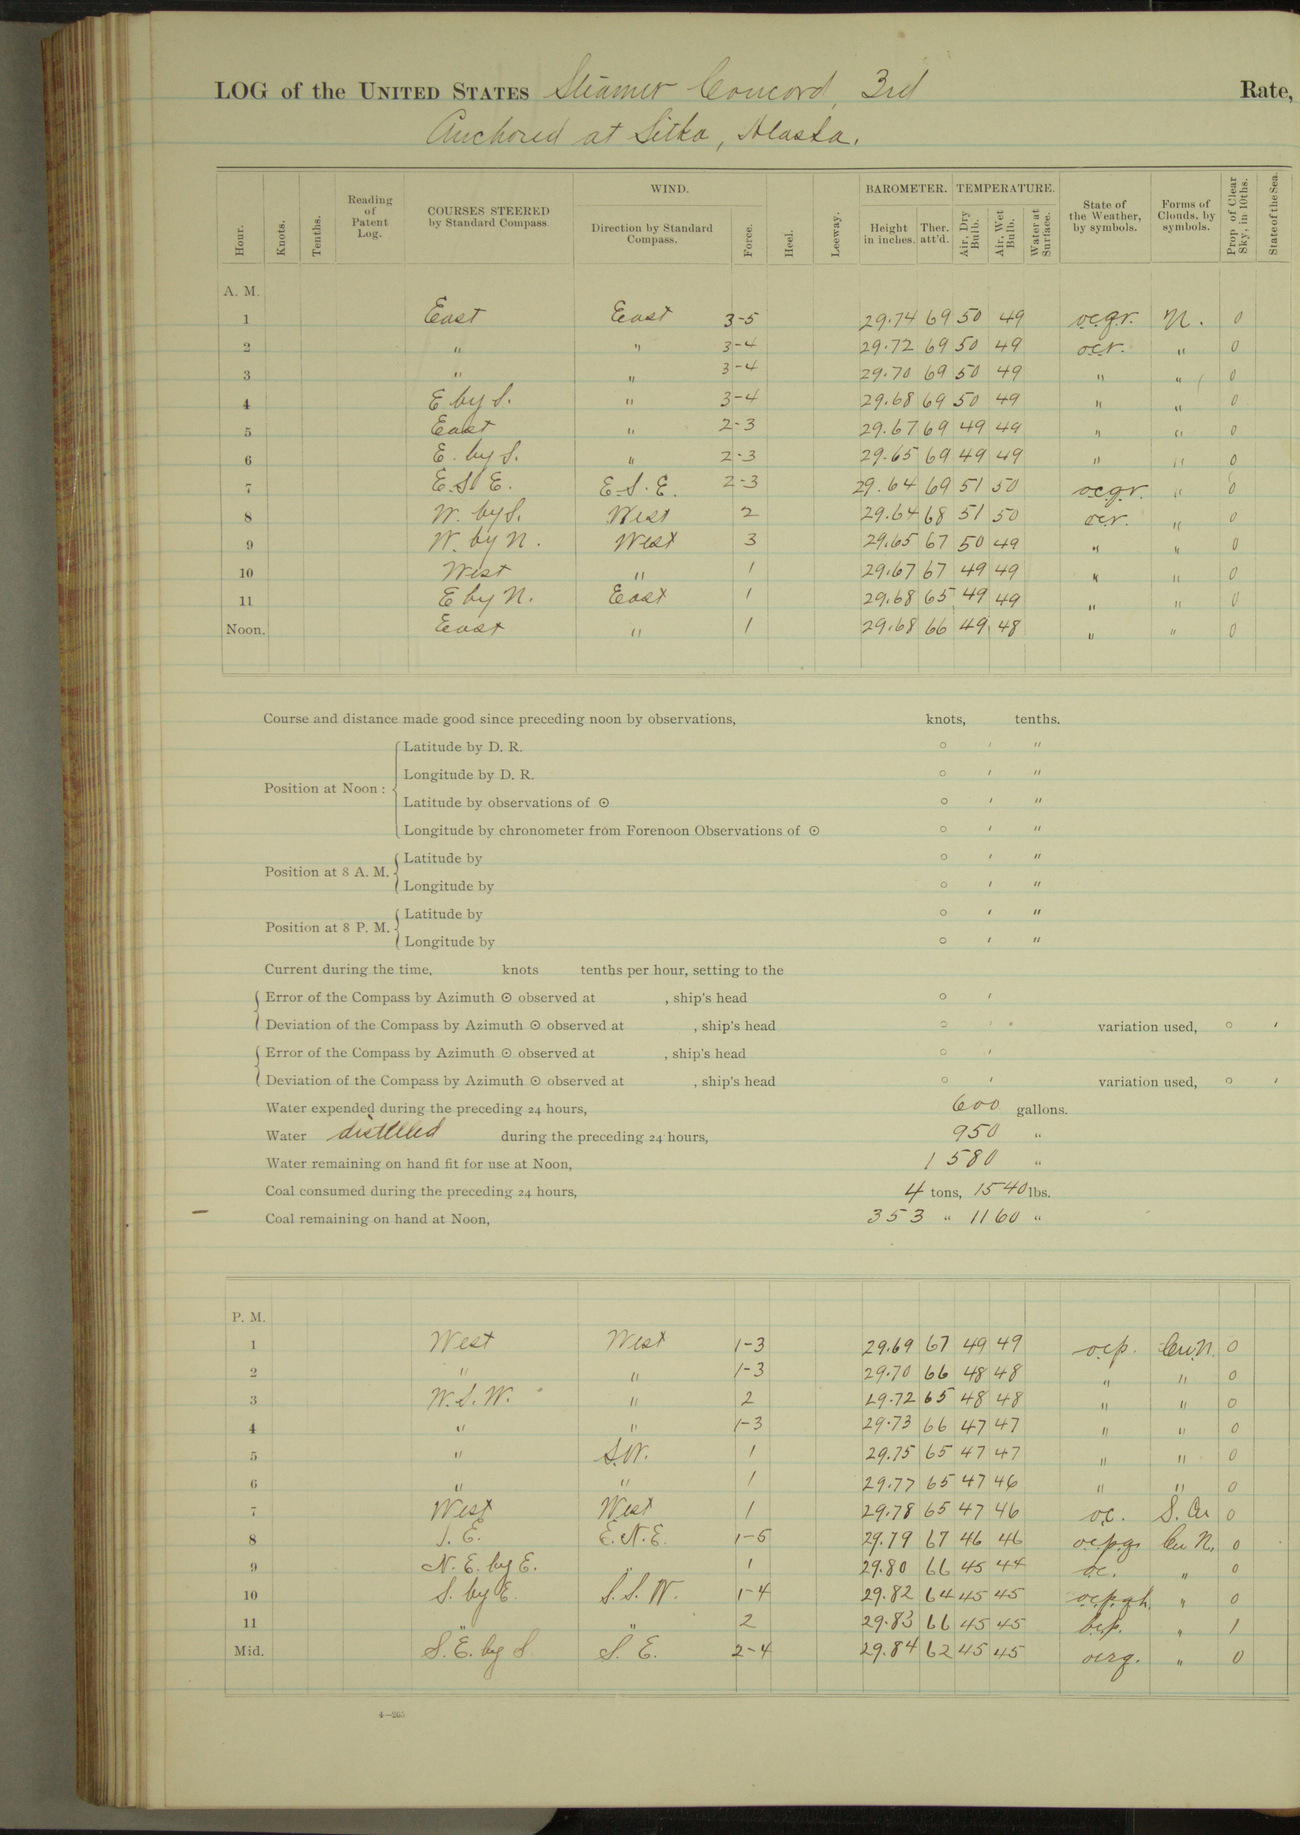 LOG of the UNITED STATES Steamer Concord, 3rd Rate,
Anchored at Sitka, Alaska.
WIND. BAROMETER. TEMPERATURE.
Hour. Knots. Tenths. Reading of Patent Log. COURSES STEERED by Standard Compass. Direction by Standard Compass. Force. Heel. Leeway. Height in inches. Ther. att'd. Air, Dry Bulb. Air, Wet Bulb. Water at Surface. State of the Weather, by symbols. Forms of Clouds, by symbols. Prop. of Clear Sky, in 10ths. State of the Sea.
A. M.
1 East East 3-5 29.74 69 50 49 o.c.g.r. N. 0
2 " " 3-4 29.72 69 50 49 o.c.r. " 0
3 " " 3-4 29.70 69 50 49 " " 0
4 E by S. " 3-4 29.68 69 50 49 " " 0
5 East " 2-3 29.67 69 49 49 " " 0
6 E. by S. " 2-3 29.65 69 49 49 " " 0
7 E.S.E. E.S.E. 2-3 29.64 69 51 50 o.c.g.r. " 0
8 W. by S. West 2 29.64 68 51 50 o.c.r. " 0
9 W. by N. West 3 29.65 67 50 49 " " 0
10 West " 1 29.67 67 49 49 " " 0
11 E by N. East 1 29.68 65 49 49 " " 0
Noon. East " 1 29.68 66 49 48 " " 0
Course and distance made good since preceding noon by observations, knots, tenths.
Latitude by D. R. ° ' "
Longitude by D. R. ° ' "
Position at Noon :
Latitude by observations of ☉ ° ' "
Longitude by chronometer from Forenoon Observations of ☉ ° ' "
Latitude by ° ' "
Position at 8 A. M.
Longitude by ° ' "
Latitude by ° ' "
Position at 8 P. M.
Longitude by ° ' "
Current during the time, knots tenths per hour, setting to the
Error of the Compass by Azimuth ☉ observed at , ship's head ° '
Deviation of the Compass by Azimuth ☉ observed at , ship's head ° ' variation used, ° '
Error of the Compass by Azimuth ☉ observed at , ship's head ° '
Deviation of the Compass by Azimuth ☉ observed at , ship's head ° ' variation used, ° '
Water expended during the preceding 24 hours, 600 gallons.
Water distilled during the preceding 24 hours, 950 "
Water remaining on hand fit for use at Noon, 1580 "
Coal consumed during the preceding 24 hours, 4 tons, 1540 lbs.
Coal remaining on hand at Noon, 353 " 1160 "
P. M.
1 West West 1-3 29.69 67 49 49 o.c.p. Cu.N. 0
2 " " 1-3 29.70 66 48 48 " " 0
3 W.S.W. " 2 29.72 65 48 48 " " 0
4 " " 1-3 29.73 66 47 47 " " 0
5 " S.W. 1 29.75 65 47 47 " " 0
6 " " 1 29.77 65 47 46 " " 0
7 West West 1 29.78 65 47 46 o.c. S. Cu 0
8 S. E. E.N.E. 1-5 29.79 67 46 46 o.c.p.g. Cu N. 0
9 N. E. by E. " 1 29.80 66 45 44 o.c. " 0
10 S. by E. S. S. W. 1-4 29.82 64 45 45 o.c.p.g.h. " 0
11 " " 2 29.83 66 45 45 b.c.p. " 1
Mid. S. E. by S S. E. 2-4 29.84 62 45 45 o.c.r.g. " 0
4—205